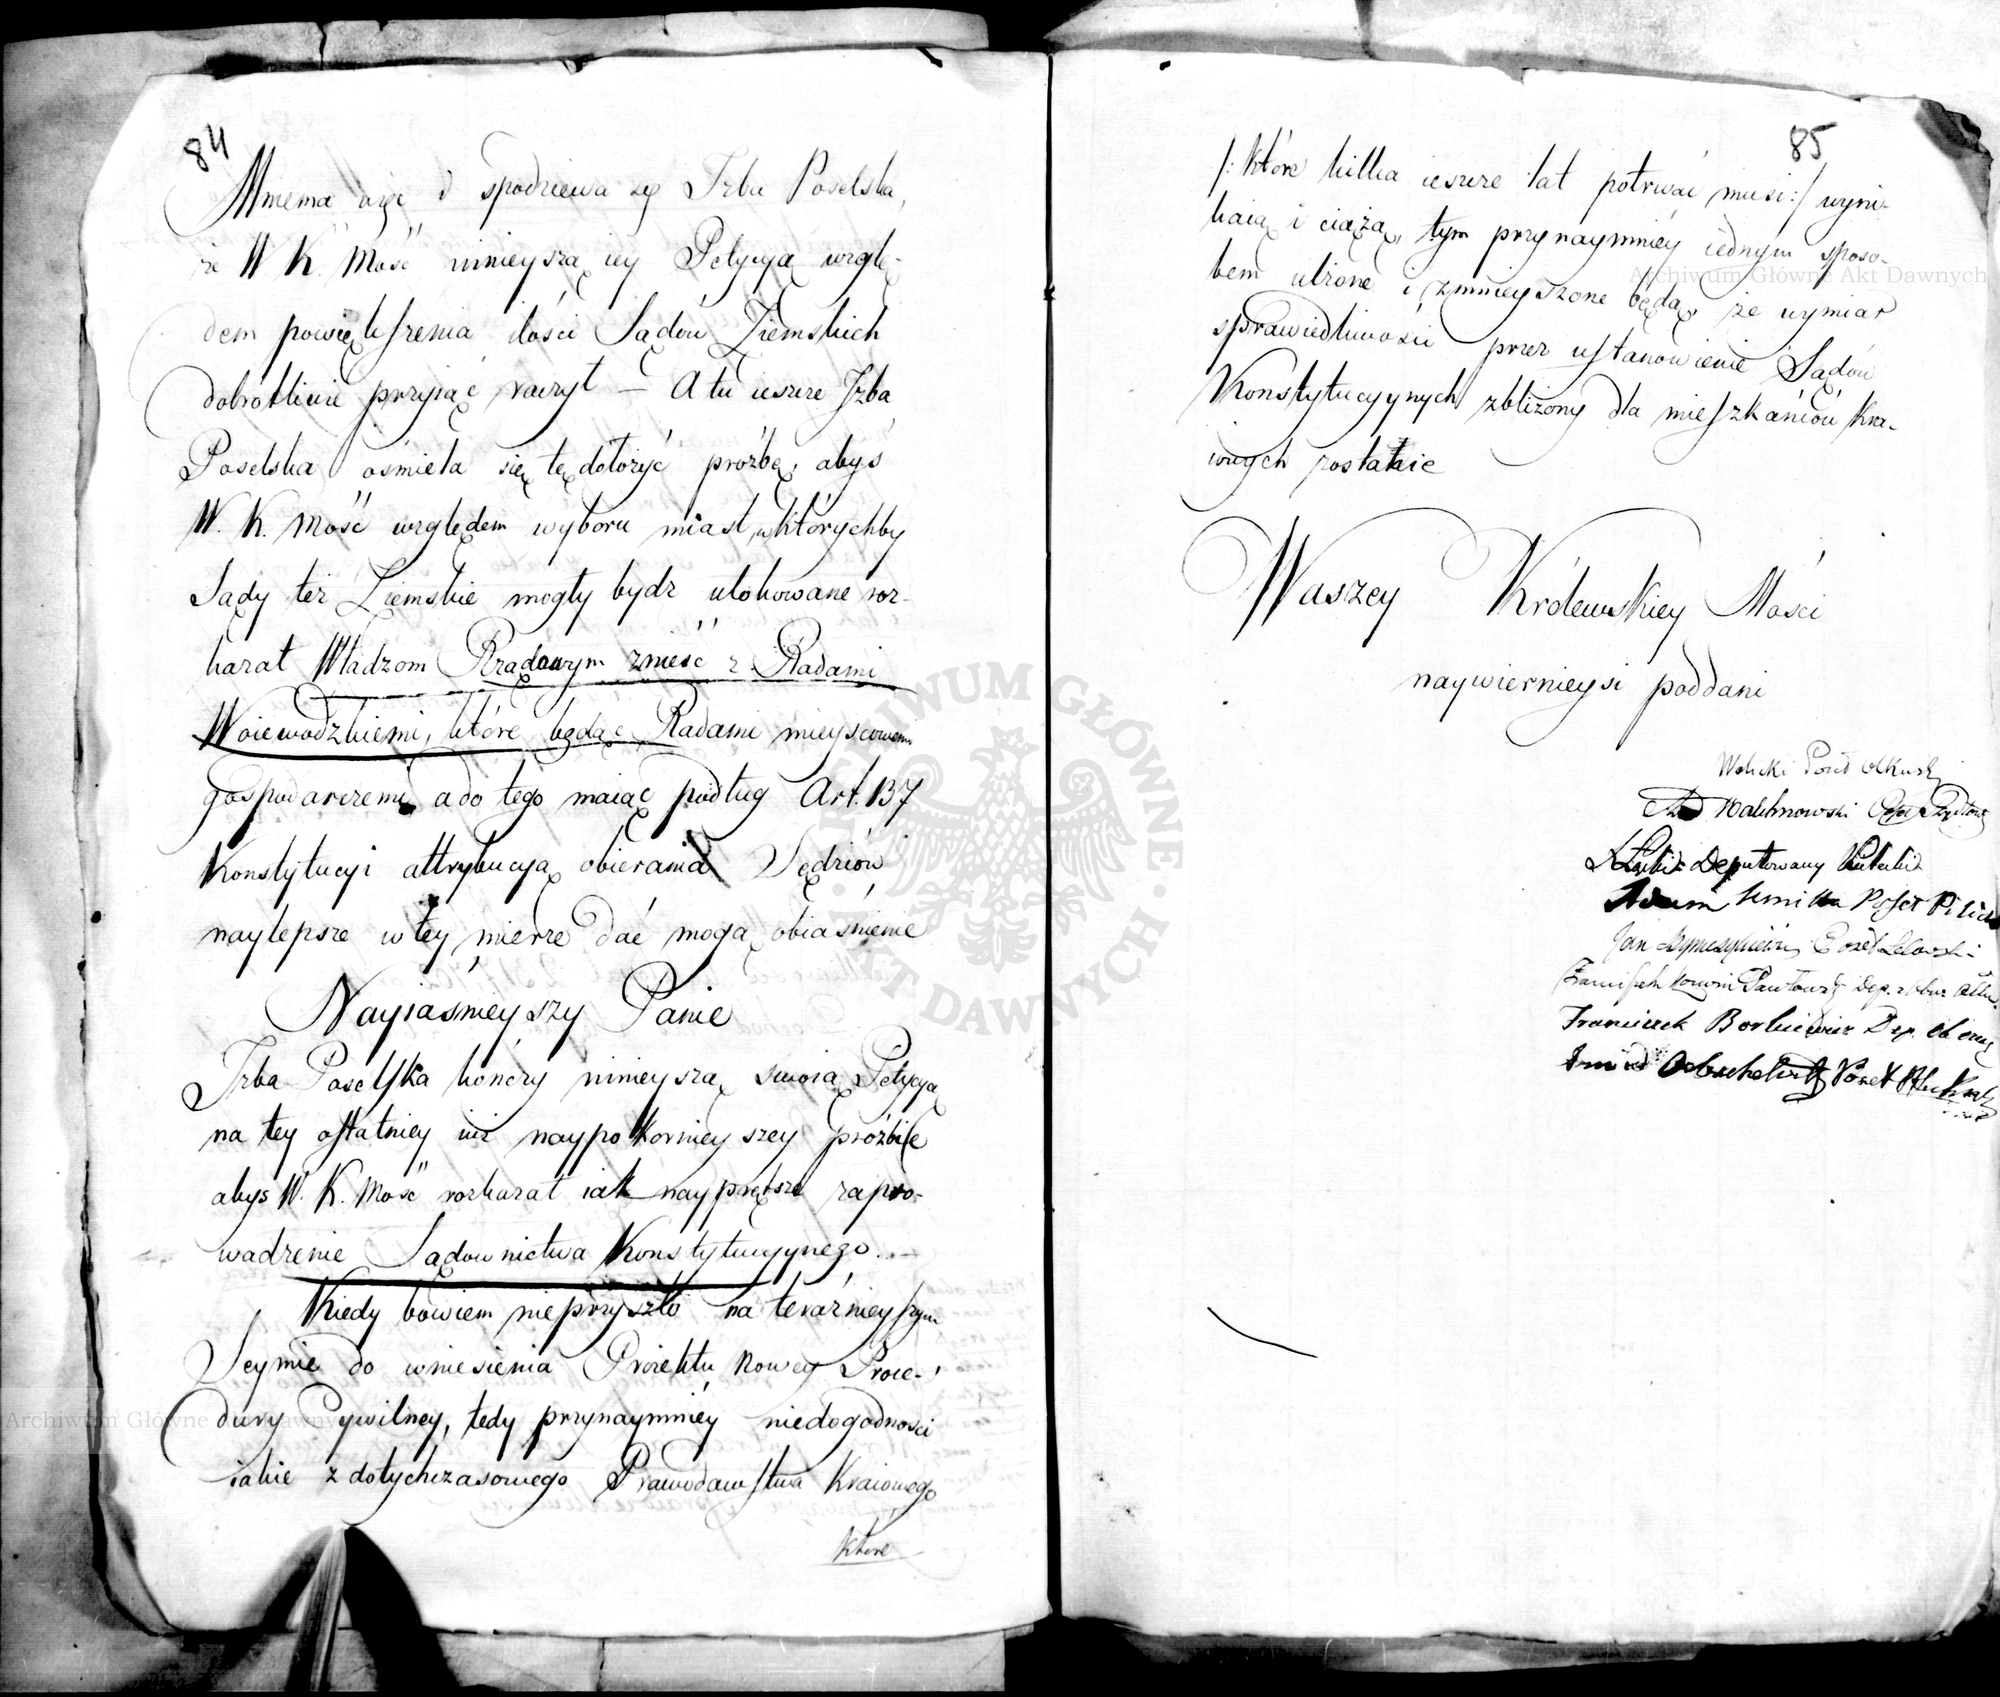 84
Mniema więc i spodziewa się Izba Poselska,
że W K. Mość ninieyszą iey Petycyą wzglę-
dem powiększenia ilości Sądów Ziemskich
dobrotliwie przyiąć raczył — A tu ieszcze Izba
Poselska ośmiela się tę dołożyć prożbę, abyś
W. K. Mość względem wyboru miast, w którychby
Sądy też Ziemskie mogły bydz ulokowane roz-
kazał Władzom Rządowym znieść z Radami
Woiewodzkiemi, które będąc Radami mieyscowemi
gospodarczemi, a do tego maiąc podług Art. 137
Konstytucyi attrybucyą obierania Sędziów
naylepsze w tey mierze dać mogą obiaśnienie
Nayiaśnieyszy Panie
Izba Poselska kończy ninieyszą swoią Petycyą
na tey ostatniey iuż naypokornieyszey prożbie
abyś W. K. Mość rozkazał iak nayprędsze zapro-
wadzenie Sądownictwa Konstytucyynego.
Kiedy bowiem nie przyszło na teraźnieyszym
Seymie do wniesienia Proiektu Nowey Proce-
dury Cywilney, tedy przynaymniéy niedogodności
iakie z dotychczasowego Prawodawstwa Kraiowego
które
85
/: które kilka ieszcze lat potrwać musi :/ wyni-
kaią i ciążą, tym przynaymniéy iednym sposo-
bem ulżone i zmnieyszone będą, że wymiar
sprawiedliwości przez ustanowienie Sądów
Konstytucyynych zbliżony dla mieszkańców Kra-
iowych zostanie
Waszey Królewskiey Mości
naywiernieysi poddani
Wolicki Poseł Olkuski
Małachowski Poseł
Deputowany
Adam Poseł Pilicki
Jan Poseł Lelowski
Franciszek Pawłowski Dep. z Obw. Olku.
Franciszek Borkiewicz Dep.
Poseł
ARCHIWUM GŁÓWNE AKT DAWNYCH
Archiwum Główne Akt Dawnych
Archiwum Główne Akt Dawnych